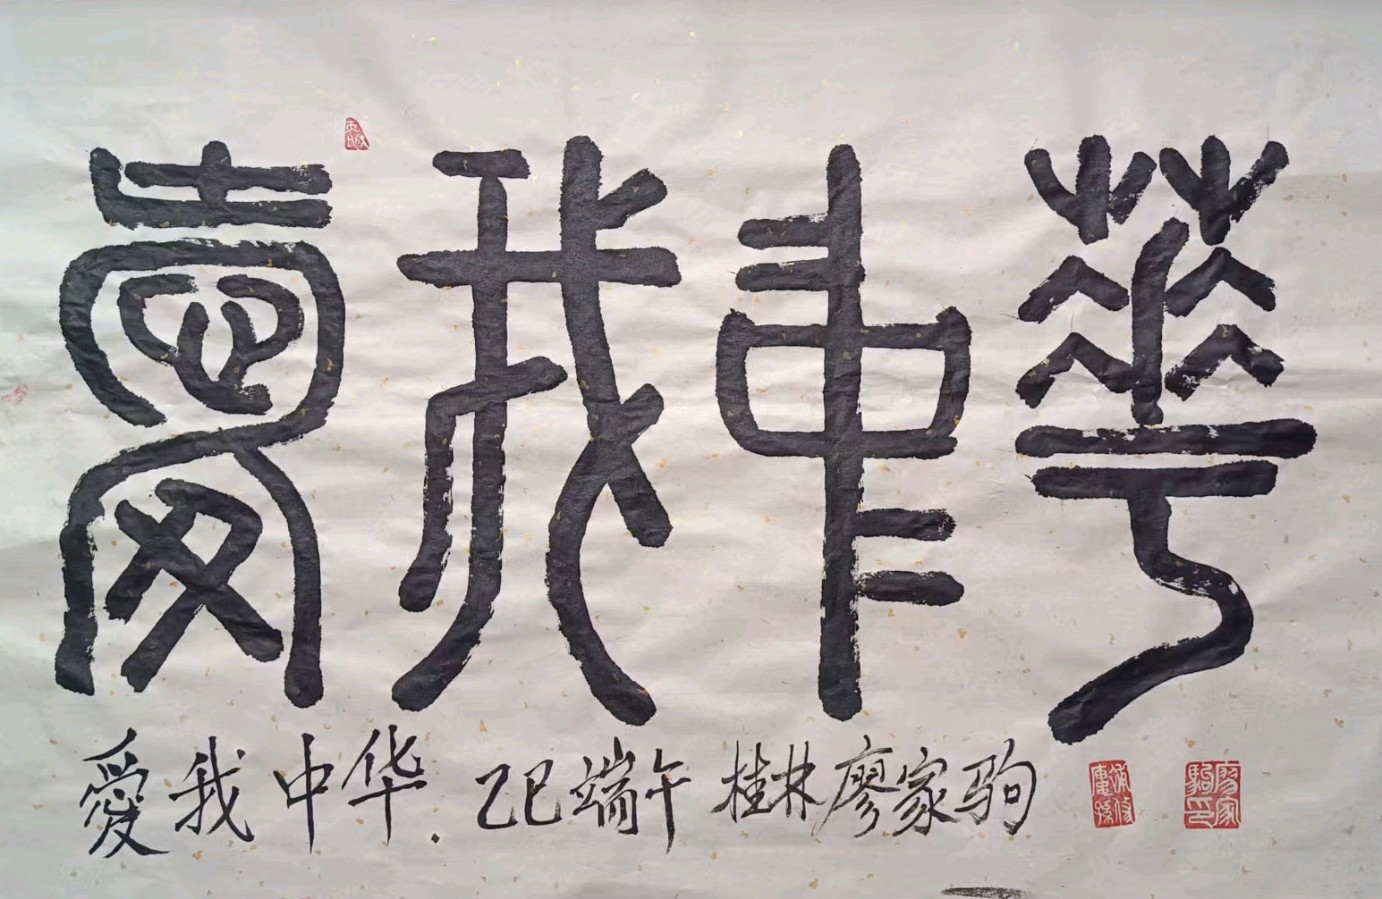 愛我中華
愛我中华.乙巳端午 桂林廖家驹
廖家駒印